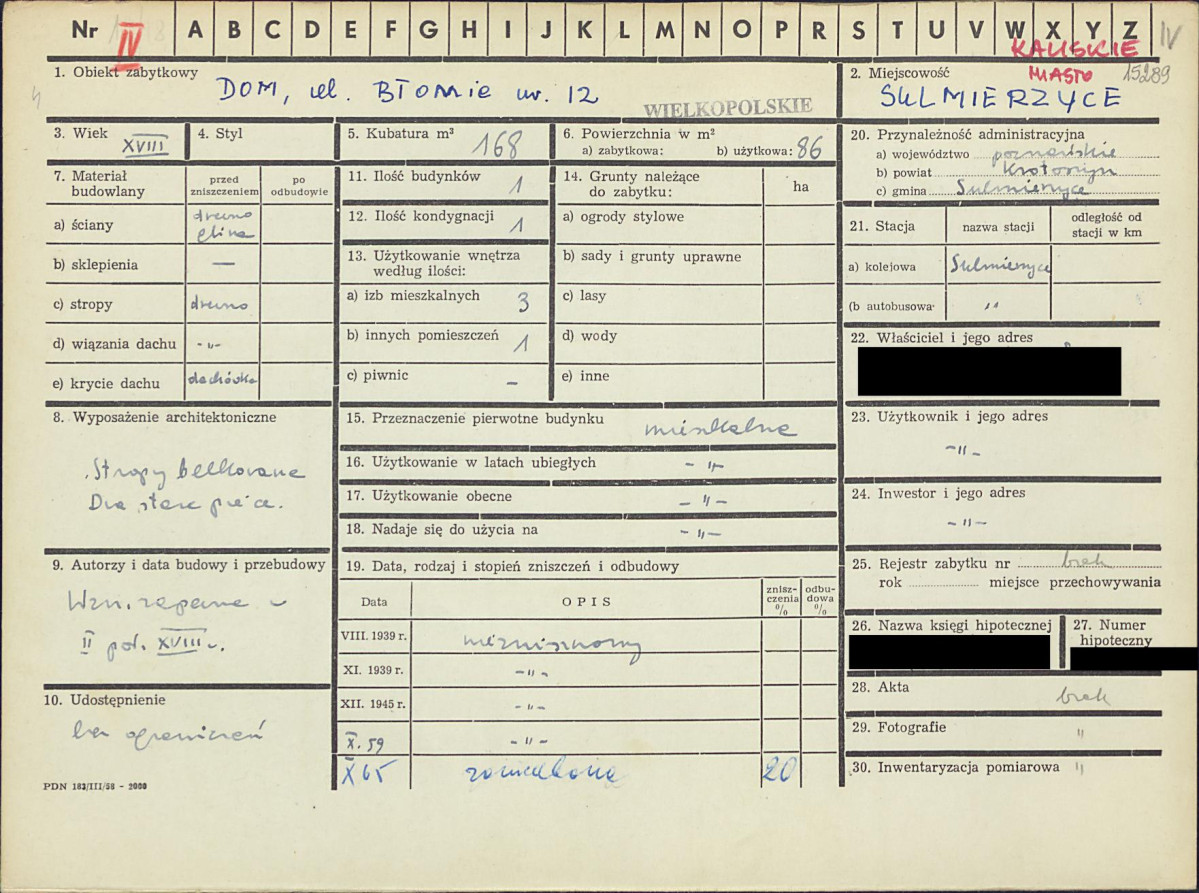 Nr IV A B C D E F G H I J K L M N O P R S T U V W X Y Z IV
KALISKIE
MIASTO 15289
1. Obiekt zabytkowy
DOM, ul. BŁONIE nr. 12
WIELKOPOLSKIE
2. Miejscowość
SULMIERZYCE
3. Wiek XVIII
4. Styl
5. Kubatura m³ 168
6. Powierzchnia w m²
a) zabytkowa: b) użytkowa: 86
20. Przynależność administracyjna
a) województwo poznańskie
b) powiat Krotoszyn
c) gmina Sulmierzyce
7. Materiał budowlany
przed zniszczeniem
po odbudowie
a) ściany drewno glina
b) sklepienia —
c) stropy drewno
d) wiązania dachu -"-
e) krycie dachu dachówka
11. Ilość budynków 1
12. Ilość kondygnacji 1
13. Użytkowanie wnętrza
według ilości:
a) izb mieszkalnych 3
b) innych pomieszczeń 1
c) piwnic -
14. Grunty należące
do zabytku: ha
a) ogrody stylowe
b) sady i grunty uprawne
c) lasy
d) wody
e) inne
21. Stacja nazwa stacji odległość od stacji w km
a) kolejowa Sulmierzyce
(b autobusowa "
22. Właściciel i jego adres
8. Wyposażenie architektoniczne
Stropy belkowane
Dwa stare piece.
15. Przeznaczenie pierwotne budynku mieszkalne
16. Użytkowanie w latach ubiegłych -"-
17. Użytkowanie obecne -"-
18. Nadaje się do użycia na -"-
23. Użytkownik i jego adres
-"-
24. Inwestor i jego adres
-"-
9. Autorzy i data budowy i przebudowy
II poł. XVIII w.
10. Udostępnienie
bez ograniczeń
19. Data, rodzaj i stopień zniszczeń i odbudowy
Data OPIS znisz-czenia % odbu-dowa %
VIII. 1939 r. niezniszczony
XI. 1939 r. -"-
XII. 1945 r. -"-
X. 59 -"-
X 65 zaniedbane 20
25. Rejestr zabytku nr brak
rok miejsce przechowywania
26. Nazwa księgi hipotecznej
27. Numer hipoteczny
28. Akta brak
29. Fotografie "
30. Inwentaryzacja pomiarowa "
PDN 183/III/58 - 2000